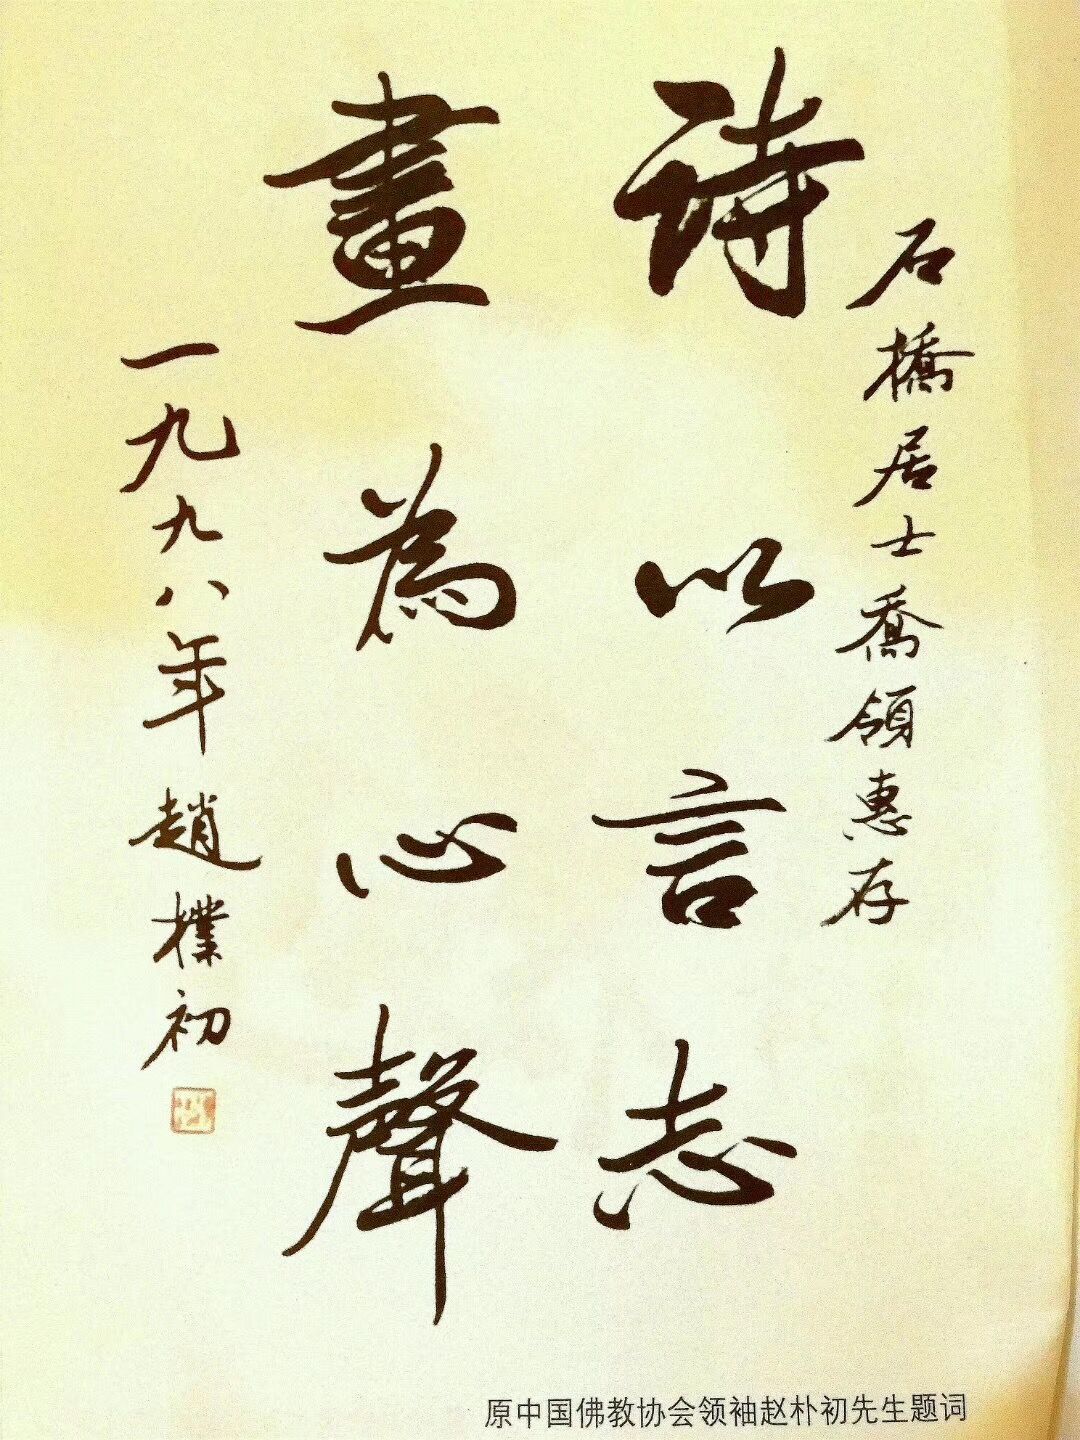 石橋居士喬領惠存
詩以言志
畫為心聲
一九九八年趙樸初
原中国佛教协会领袖赵朴初先生题词